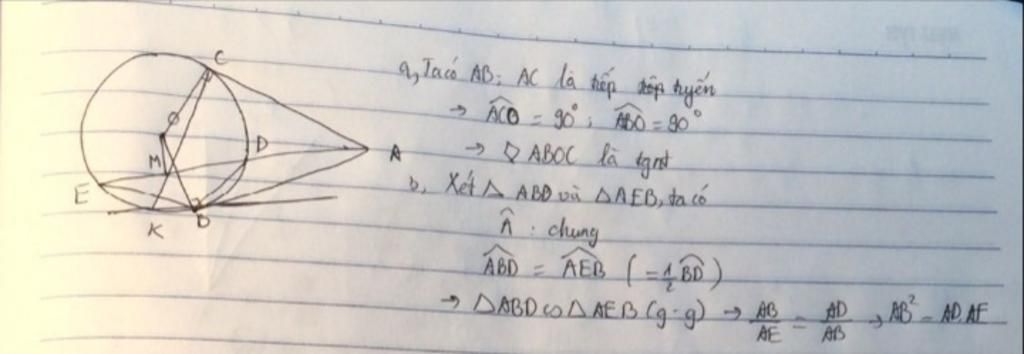 C
O
D
A
M
E
K
B
a, Ta có AB; AC là tiếp tuyến
→ ACO = 90°; ABO = 90°
→ ABOC là tgnt
b, Xét △ ABD và △AEB, ta có
Â : chung
ABD = AEB (= 1/2 BD)
→ △ABD ∽ △AEB (g.g) → AB/AE = AD/AB → AB² = AD.AE